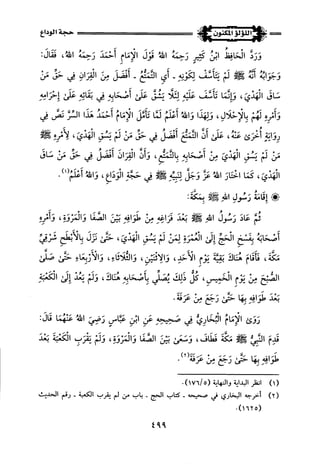 اللؤلؤ المكنون
حجة الوداع
وَرَدَّ الْحَافِظُ ابْنُ كَثِيرٍ رَحِمَهُ اللهُ قَوْلَ الْإِمَامِ أَحْمَدَ رَحِمَهُ اللهُ، فَقَالَ:
وَجَوَابُهُ أَنَّهُ ﷺ لَمْ يَتَأَسَّفْ لِكَوْنِهِ - أَيِ التَّمَتُّعُ - أَفْضَلَ مِنَ الْقِرَانِ فِي حَقِّ مَنْ
سَاقَ الْهَدْيَ، وَإِنَّمَا تَأَسَّفَ عَلَيْهِ لِئَلَّا يَشُقَّ عَلَى أَصْحَابِهِ فِي بَقَائِهِ عَلَى إِحْرَامِهِ
وَأَمْرِهِ لَهُمْ بِالْإِحْلَالِ، وَلِهَذَا وَاللهُ أَعْلَمُ لَمَّا تَأَمَّلَ الْإِمَامُ أَحْمَدُ هَذَا السِّرَّ نَصَّ فِي
رِوَايَةٍ أُخْرَى عَنْهُ، عَلَى أَنَّ التَّمَتُّعَ أَفْضَلُ فِي حَقِّ مَنْ لَمْ يَسُقِ الْهَدْيَ، لِأَمْرِهِ ﷺ
مَنْ لَمْ يَسُقِ الْهَدْيَ مِنْ أَصْحَابِهِ بِالتَّمَتُّعِ، وَأَنَّ الْقِرَانَ أَفْضَلُ فِي حَقِّ مَنْ سَاقَ
الْهَدْيَ، كَمَا اخْتَارَ اللهُ عَزَّ وَجَلَّ لِنَبِيِّهِ ﷺ فِي حَجَّةِ الْوَدَاعِ، وَاللهُ أَعْلَمُ(١).
إِقَامَةُ رَسُولِ اللهِ ﷺ بِمَكَّةَ:
ثُمَّ عَادَ رَسُولُ اللهِ ﷺ بَعْدَ فَرَاغِهِ مِنْ طَوَافِهِ بَيْنَ الصَّفَا وَالْمَرْوَةِ، وَأَمْرِهِ
أَصْحَابَهُ بِفَسْخِ الْحَجِّ إِلَى الْعُمْرَةِ لِمَنْ لَمْ يَسُقِ الْهَدْيَ، حَتَّى نَزَلَ بِالْأَبْطَحِ شَرْقِيَّ
مَكَّةَ، فَأَقَامَ هُنَاكَ بَقِيَّةَ يَوْمِ الْأَحَدِ، وَالْاثْنَيْنِ، وَالثُّلَاثَاءِ، وَالْأَرْبِعَاءِ حَتَّى صَلَّى
الصُّبْحَ مِنْ يَوْمِ الْخَمِيسِ، كُلُّ ذَلِكَ يُصَلِّي بِأَصْحَابِهِ هُنَاكَ، وَلَمْ يَعُدْ إِلَى الْكَعْبَةِ
بَعْدَ طَوَافِهِ بِهَا حَتَّى رَجَعَ مِنْ عَرَفَةَ.
رَوَى الْإِمَامُ الْبُخَارِيُّ فِي صَحِيحِهِ عَنِ ابْنِ عَبَّاسٍ رَضِيَ اللهُ عَنْهُمَا قَالَ:
قَدِمَ النَّبِيُّ ﷺ مَكَّةَ فَطَافَ، وَسَعَى بَيْنَ الصَّفَا وَالْمَرْوَةِ، وَلَمْ يَقْرَبِ الْكَعْبَةَ بَعْدَ
طَوَافِهِ بِهَا حَتَّى رَجَعَ مِنْ عَرَفَةَ(٢).
(١) انظر البداية والنهاية (١٧٦/٥).
(٢) أخرجه البخاري في صحيحه - كتاب الحج - باب من لم يقرب الكعبة - رقم الحديث
(١٦٢٥).
٤٩٩